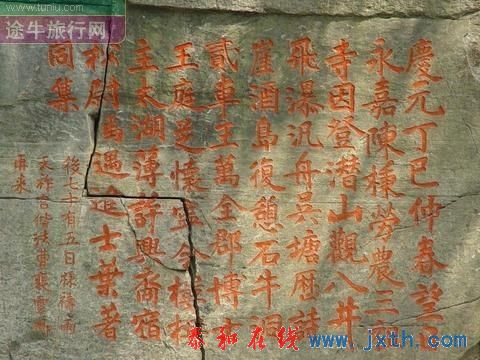 www.tuniu.com
途牛旅行网
慶元丁巳仲春望日
永嘉陳樸勞農三
寺因登潛山觀八井
飛瀑汎舟吳塘歷詩
崖酒島復憩石牛洞
貳車王萬全郡博
王庭芝懷寧令樓
主太湖薄許興裔宿
松尉馬遇進士葉著
同集
後七十有五日
泰和在线 www.jxth.com